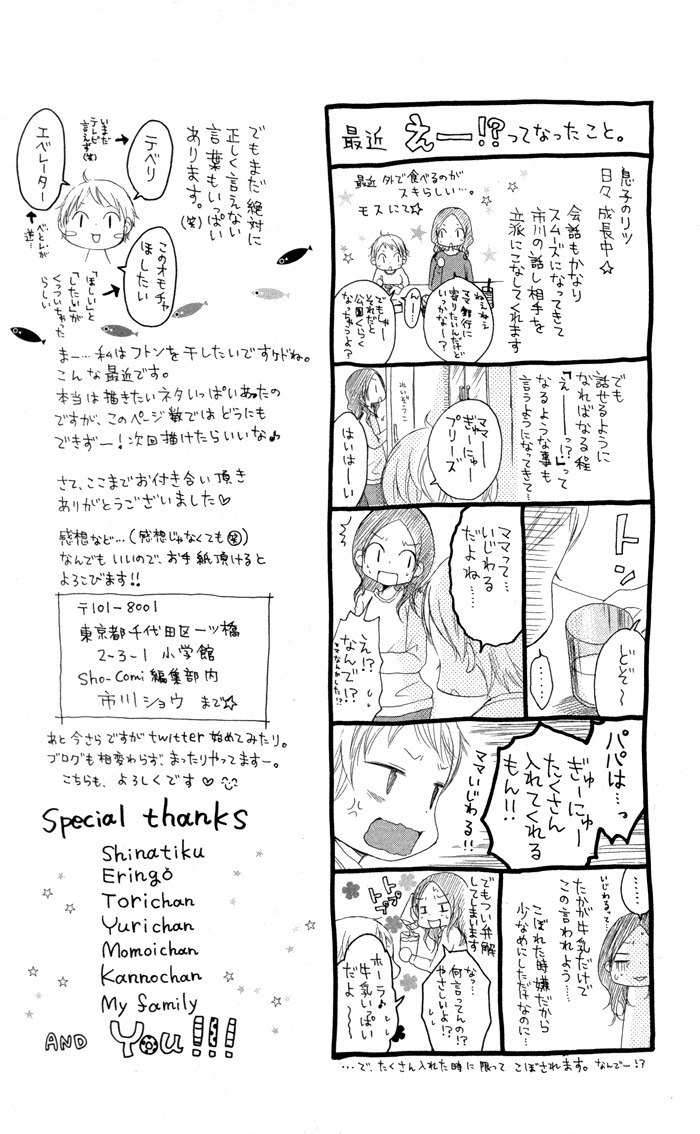 最近 えー!?ってなったこと。
息子のリツ
日々成長中☆
会話もかなり
スムーズになってきて
市川の話し相手を
立派にこなしてくれます
最近 外で食べるのが
スキらしい…。
モスにて☆
ねぇねぇ
ママ銀行に
寄りたいんだけど
いっかなー?
んー…
でもしゃー
それだと
公園くらく
なっちゃうよ?
でも
話せるように
なればなる程
「えーーっ!?」って
なるような事も
言うようになってきて…
れいぞうこ
ママーー
ぎゅーにゅー
プリーズ
はいはーい
トン
どぞ〜
……
ママって…
いじわる
だよね……
え!?
なんで!?
ママなんかした!?
パパは…っ
ぎゅーにゅー
たくさん
入れてくれる
もん!!
ママいじわる!!
……
いじわるって…
たかが牛乳だけで
この言われよう…
こぼれた時嫌だから
少なめにしただけなのに…
でもつい弁解
してしまいます
トプトプ
なっ…
何言ってんの!?
やさしいよ!?
ホーラ♪
牛乳いっぱい
だよ〜
…で、たくさん入れた時に限って こぼされます。なんでー!?
でもまだ絶対に
正しく言えない
言葉もいっぱい
あります。(笑)
テベリ
いまだ
テレビと
言えず(笑)
エベレーター
べとれが
逆…
このオモチャ
ほしたい
「ほしい」と
「したい」が
くっついちゃった
らしい
まー…私はフトンを干したいですけどね。
こんな最近です。
本当は描きたいネタいっぱいあったの
ですが、このページ数ではどうにも
できずー!次回描けたらいいな♪
さて、ここまでお付き合い頂き
ありがとうございました♡
感想など…(感想じゃなくても㊁笑)
なんでもいいので、お手紙頂けると
よろこびます!!
〒101-8001
東京都千代田区一ツ橋
2-3-1 小学館
Sho-Comi編集部内
市川ショウ まで☆
あと今さらですがtwitter始めてみたり。
ブログも相変わらず、まったりやってますー。
こちらも、よろしくです♡
Special thanks
Shinatiku
Eringo
Torichan
Yurichan
Momoichan
Kannochan
My family
AND You!!!